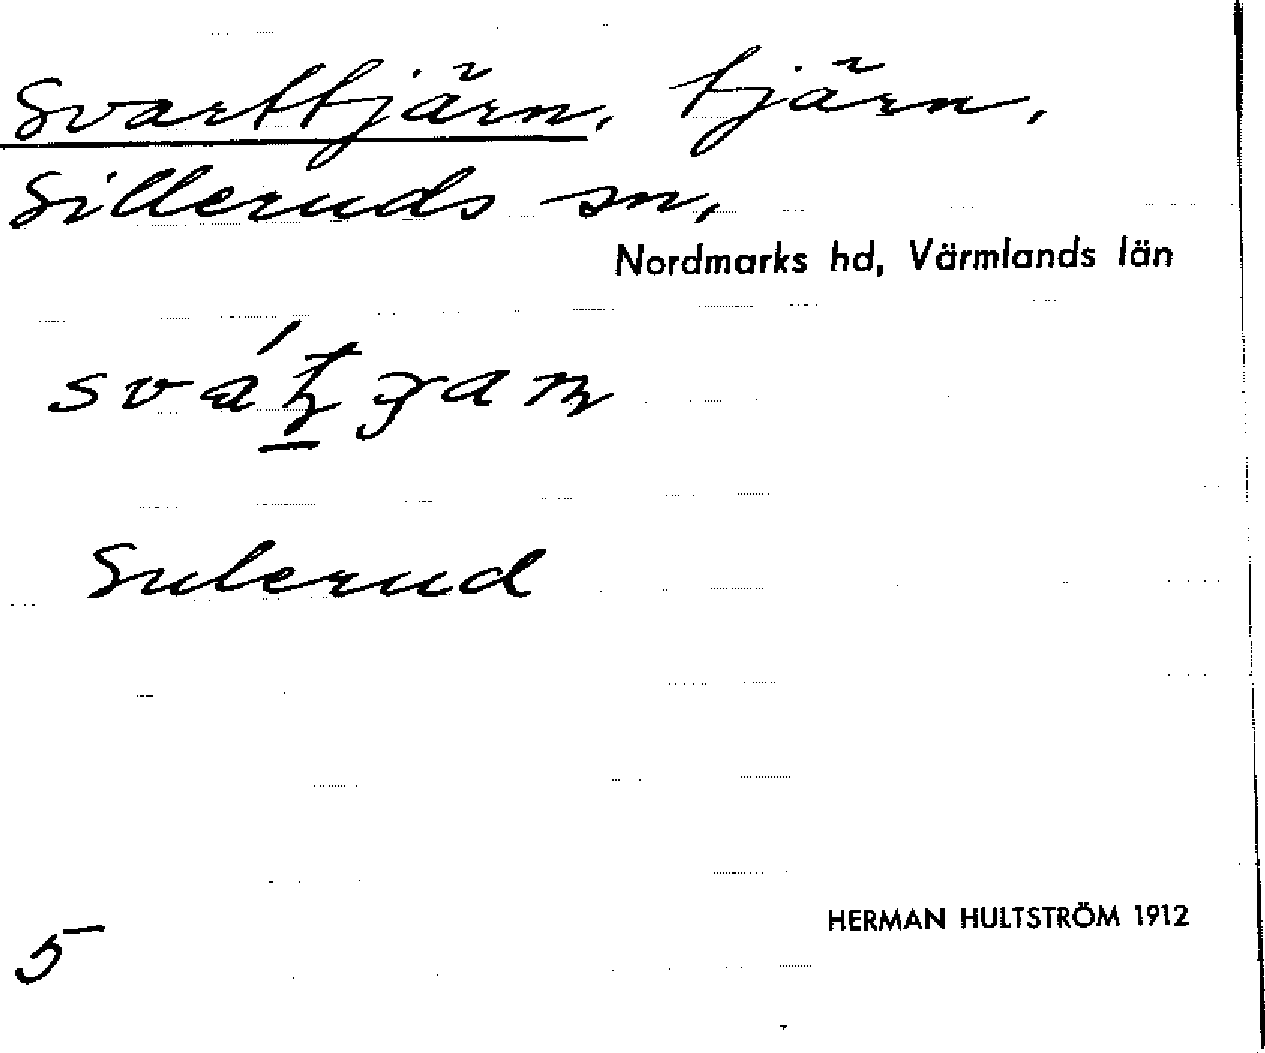 Svarttjärn, tjärn,
Silleruds sn,
Nordmarks hd, Värmlands län
Sulerud
HERMAN HULTSTRÖM 1912
5